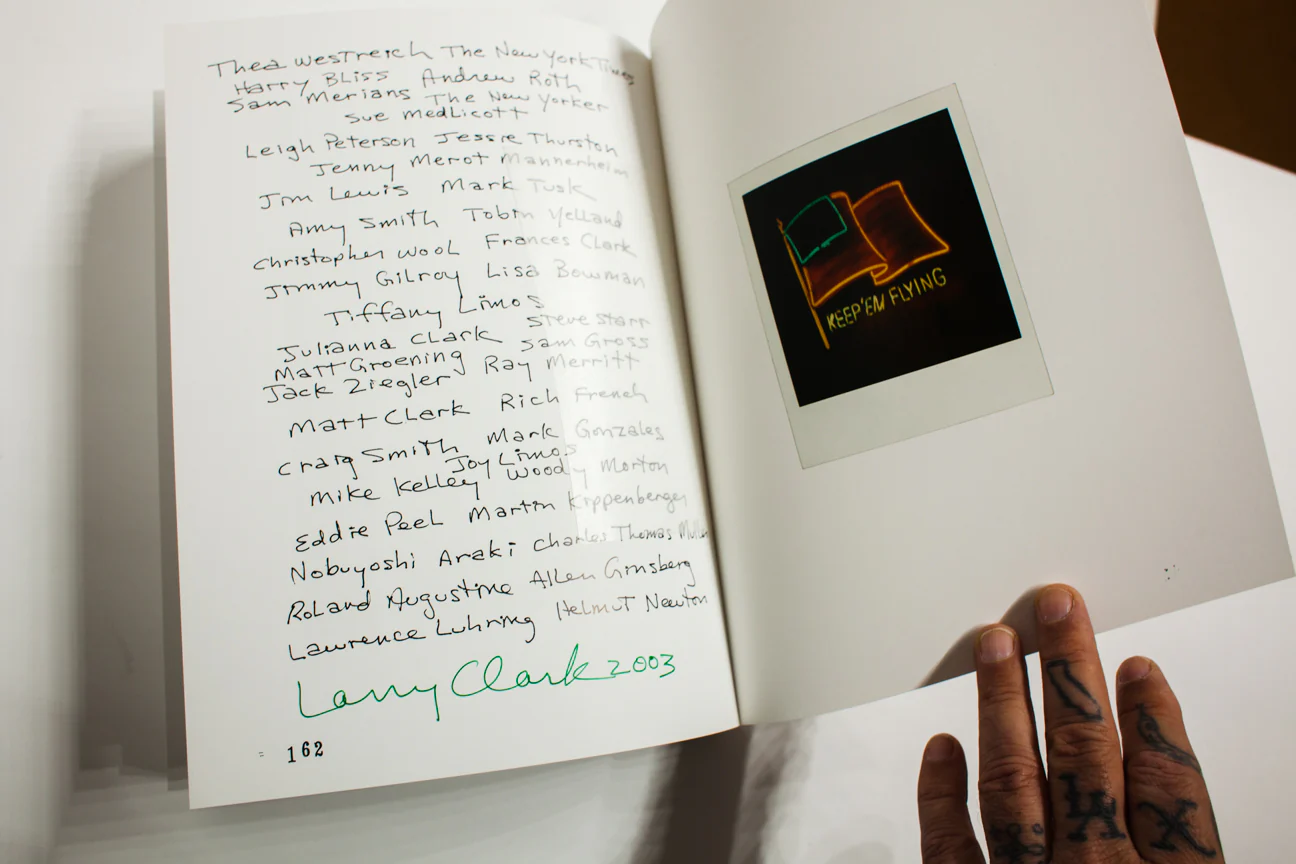 Thea Westreich The New York Times
Harry Bliss Andrew Roth
Sam Merians The New Yorker
Sue Medlicott
Leigh Peterson Jessie Thurston
Jenny Merot Mannerheim
Jim Lewis Mark Tusk
Amy Smith Tobin Yelland
Christopher Wool Frances Clark
Jimmy Gilroy Lisa Bowman
Tiffany Limos
Steve Starr
Julianna Clark Sam Gross
Matt Groening Ray Merritt
Jack Ziegler
Matt Clark Rich French
Craig Smith Mark Gonzales
Joy Limos
Mike Kelley Woody Morton
Eddie Peel Martin Kippenberger
Nobuyoshi Araki Charles Thomas
Roland Augustine Allen Ginsberg
Lawrence Luhring Helmut Newton
Larry Clark 2003
162
KEEP'EM FLYING
LA
X